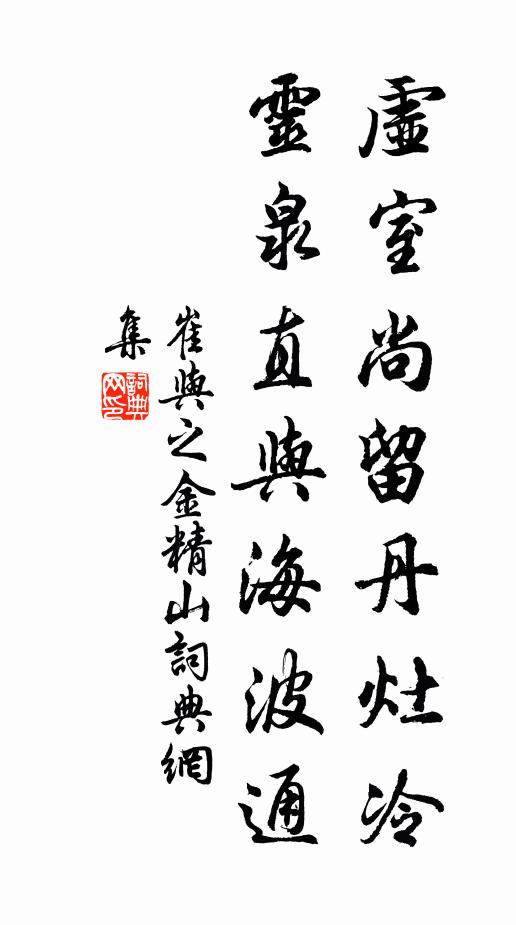 虛室尚留丹灶冷
靈泉直與海波通
崔與之金精山詞典網
集
詞典網印